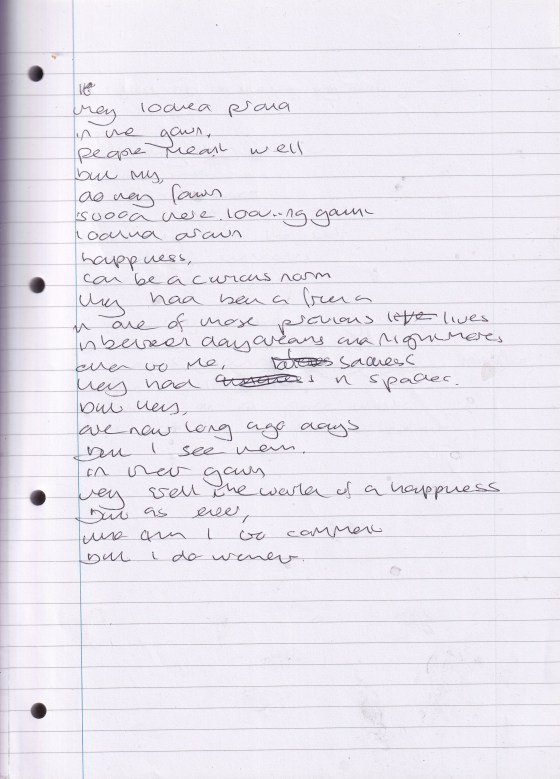 they looked proud
in the gown,
people meant well
but my,
do they fawn
stood there looking gaunt
around dawn
happiness,
can be a curious norm
they had been a friend
in one of those previous lives
in between daydreams and nightmares
even to me, sadness
they had in spades.
but they,
are now long ago days
but I see them.
in their gown
they tell the world of a happiness
but as ever,
who am I to comment
but I do wonder.